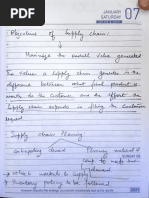 JANUARY
SATURDAY
07
Objective of Supply Chain:
→ Maximize the overall value generated
The value a Supply chain generates is the
difference between what final product is
worth to the customer, and the effort the
Supply chain expends in filling the customer
request
Supply chain Planning
→ Anticipating demand
→ which markets to supply
→ Inventory policy to be followed
SUNDAY 08